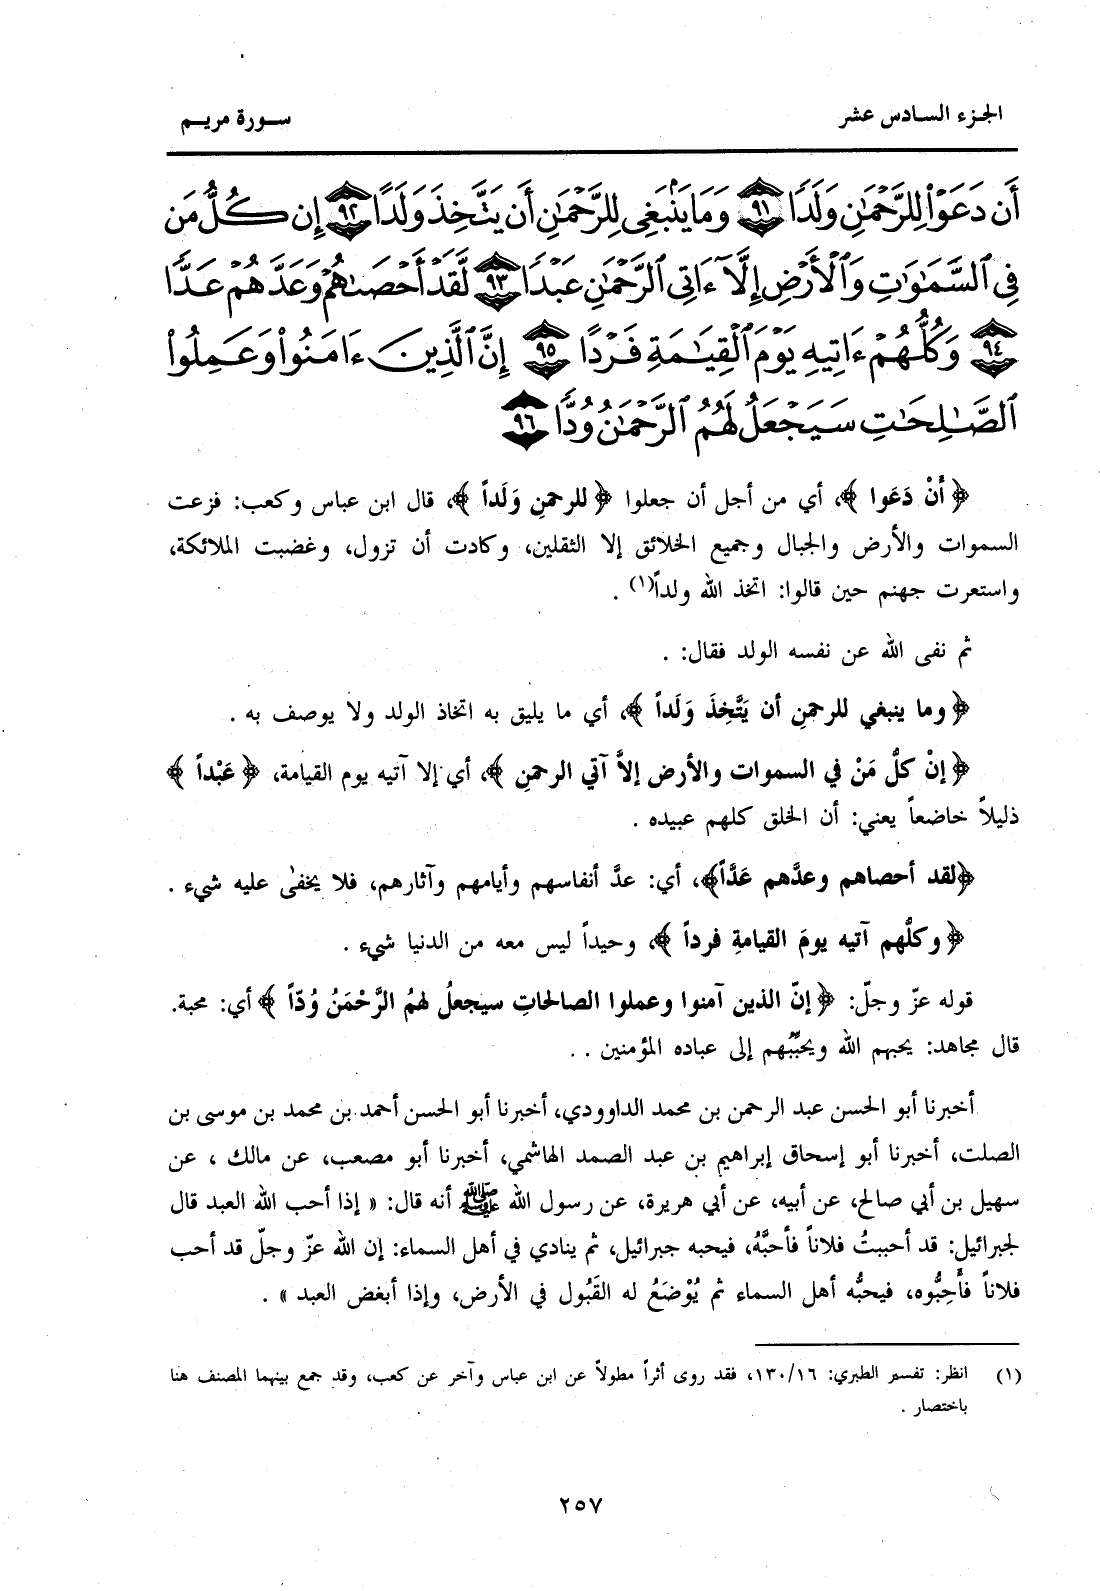 الجزء السادس عشر
سورة مريم
أَن دَعَوْا۟ لِلرَّحْمَـٰنِ وَلَدًا ٩١ وَمَا يَنۢبَغِى لِلرَّحْمَـٰنِ أَن يَتَّخِذَ وَلَدًا ٩٢ إِن كُلُّ مَن
فِى ٱلسَّمَـٰوَٰتِ وَٱلْأَرْضِ إِلَّآ ءَاتِى ٱلرَّحْمَـٰنِ عَبْدًا ٩٣ لَّقَدْ أَحْصَىٰهُمْ وَعَدَّهُمْ عَدًّا
٩٤ وَكُلُّهُمْ ءَاتِيهِ يَوْمَ ٱلْقِيَـٰمَةِ فَرْدًا ٩٥ إِنَّ ٱلَّذِينَ ءَامَنُوا۟ وَعَمِلُوا۟
ٱلصَّـٰلِحَـٰتِ سَيَجْعَلُ لَهُمُ ٱلرَّحْمَـٰنُ وُدًّا ٩٦
﴿ أَنْ دَعَوا ﴾، أي من أجل أن جعلوا ﴿ للرحمنِ وَلَداً ﴾، قال ابن عباس وكعب: فزعت
السموات والأرض والجبال وجميع الخلائق إلا الثقلين، وكادت أن تزول، وغضبت الملائكة،
واستعرت جهنم حين قالوا: اتخذ الله ولداً(١) .
ثم نفى الله عن نفسه الولد فقال: .
﴿ وما ينبغي للرحمنِ أن يَتَّخِذَ وَلَداً ﴾، أي ما يليق به اتخاذ الولد ولا يوصف به .
﴿ إنْ كلُّ مَنْ في السموات والأرض إلاَّ آتي الرحمنِ ﴾، أي إلا آتيه يوم القيامة، ﴿ عَبْداً ﴾
ذليلاً خاضعاً يعني: أن الخلق كلهم عبيده .
﴿لقد أحصاهم وعدَّهم عَدَّاً﴾، أي: عدَّ أنفاسهم وأيامهم وآثارهم، فلا يخفىٰ عليه شيء .
﴿ وكلُّهم آتيه يومَ القيامةِ فرداً ﴾، وحيداً ليس معه من الدنيا شيء .
قوله عزّ وجلّ: ﴿ إنّ الذين آمنوا وعملوا الصالحاتِ سيجعلُ لهمُ الرَّحْمَنُ وُدّاً ﴾ أي: محبة.
قال مجاهد: يحبهم الله ويحبِّبُهم إلى عباده المؤمنين . .
أخبرنا أبو الحسن عبد الرحمن بن محمد الداوودي، أخبرنا أبو الحسن أحمد بن محمد بن موسى بن
الصلت، أخبرنا أبو إسحاق إبراهيم بن عبد الصمد الهاشمي، أخبرنا أبو مصعب، عن مالك ، عن
سهيل بن أبي صالح، عن أبيه، عن أبي هريرة، عن رسول الله ﷺ أنه قال: « إذا أحب الله العبد قال
لجبرائيل: قد أحببتُ فلاناً فأحبَّهُ، فيحبه جبرائيل، ثم ينادي في أهل السماء: إن الله عزّ وجلّ قد أحب
فلاناً فأَحِبُّوه، فيحبُّه أهل السماء ثم يُوْضَعُ له القَبُول في الأرض، وإذا أبغض العبد » .
(١) انظر: تفسير الطبري: ١٣٠/١٦، فقد روى أثراً مطولاً عن ابن عباس وآخر عن كعب، وقد جمع بينهما المصنف هنا
باختصار .
٢٥٧